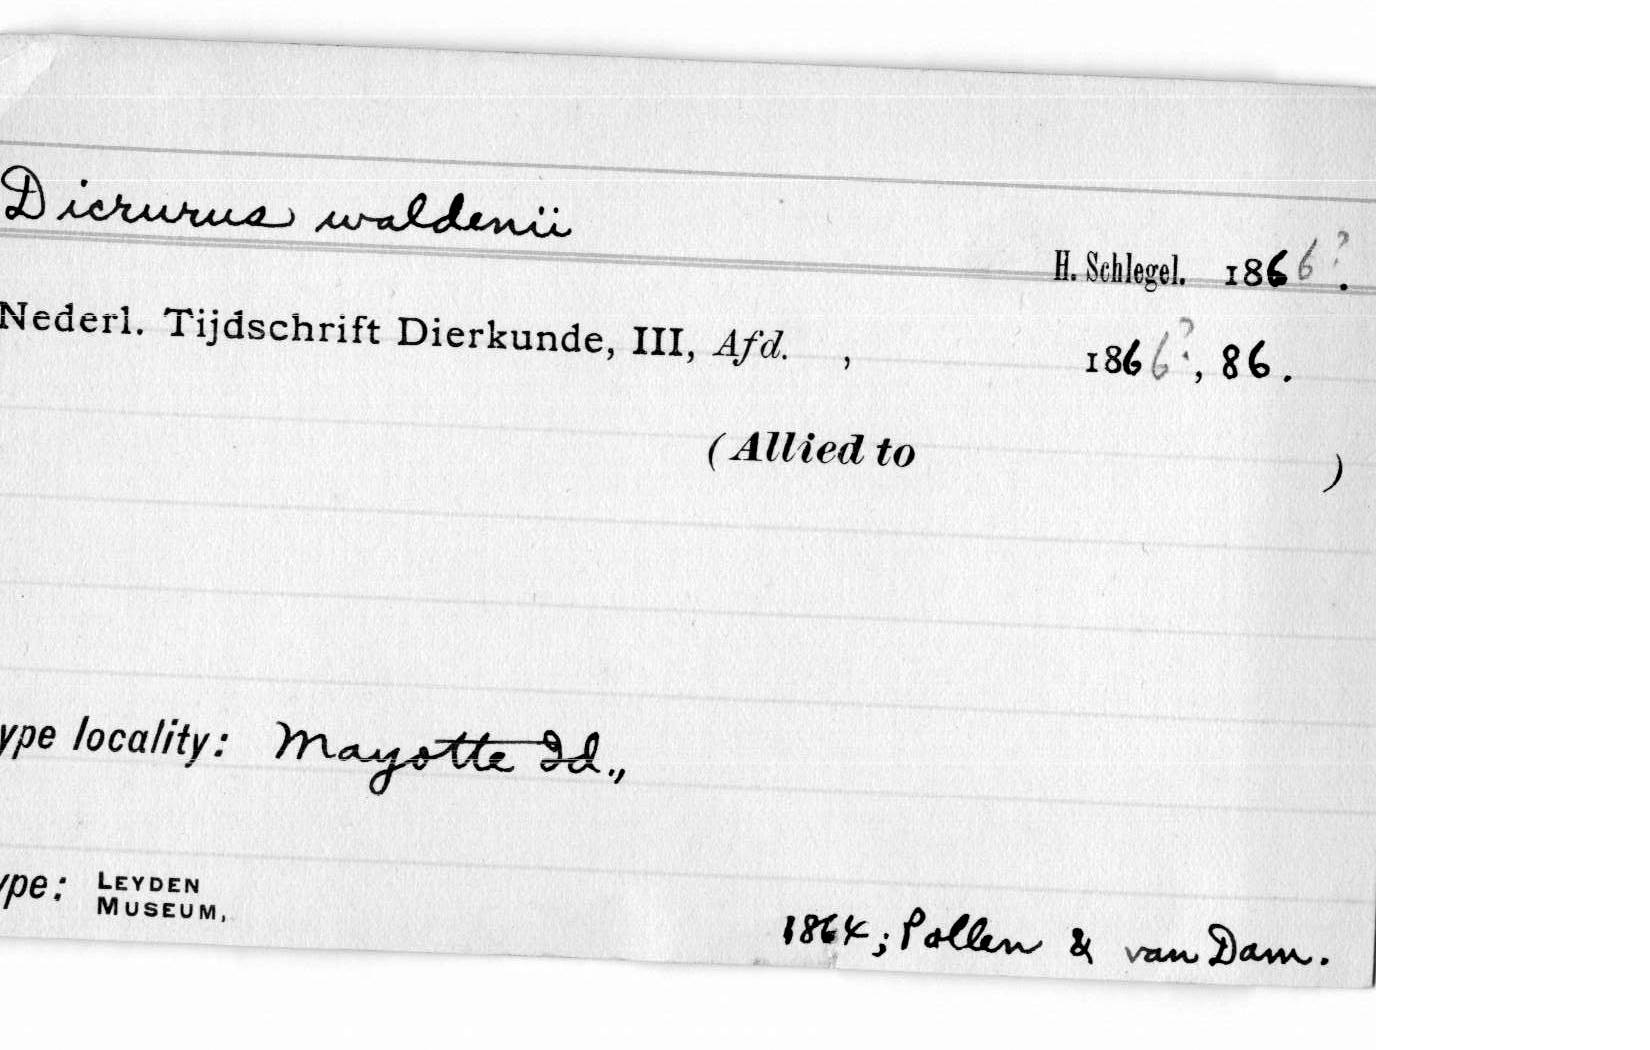 Dicrurus waldenii
H. Schlegel. 1866?.
Nederl. Tijdschrift Dierkunde, III, Afd. , 1866?, 86.
(Allied to )
ype locality: Mayotte Id.,
ype: LEYDEN
MUSEUM,
1864; Pollen & van Dam.